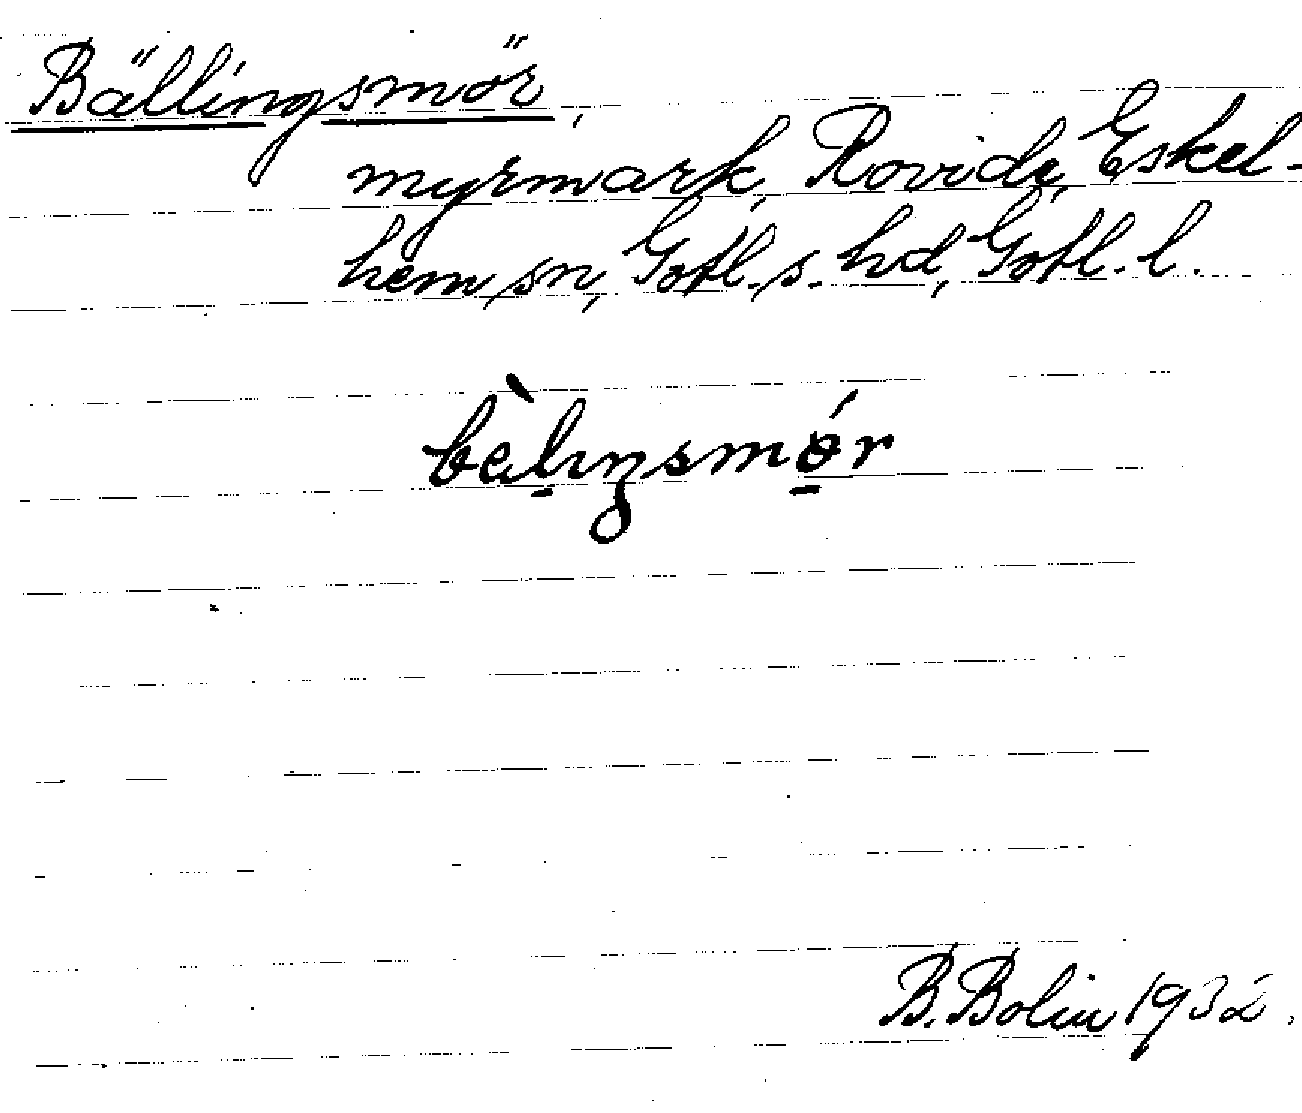 Bällingsmör,
myrmark, Rovide, Eskel-
hem sn, Gotl. s. hd, Gotl. l.
bèlıŋsmǿr
B. Bolin 1932.